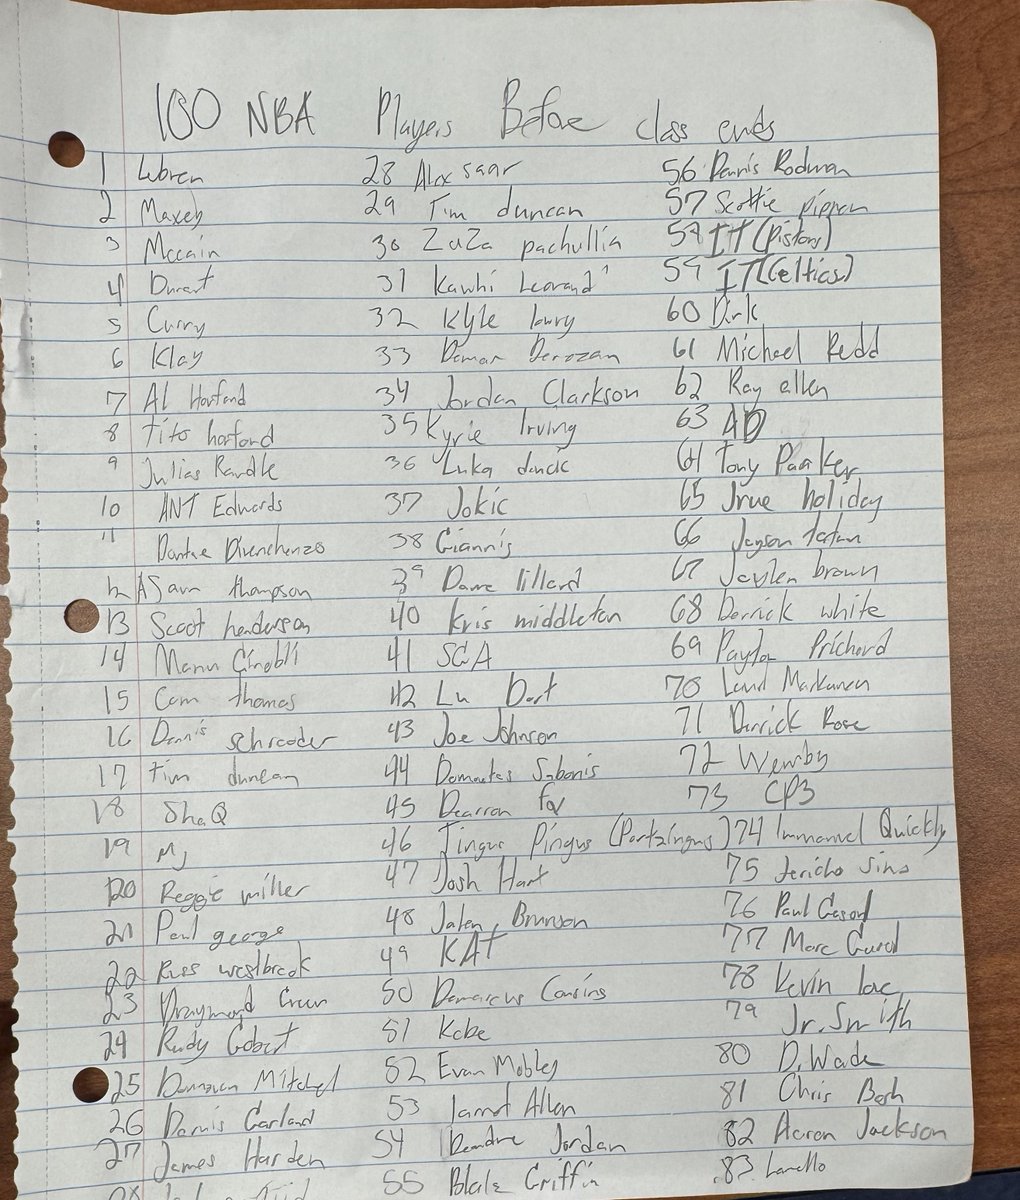 100 NBA Players Before class ends
1 Lebron
2 Maxey
3 Mccain
4 Durant
5 Curry
6 Klay
7 Al Horford
8 Tito horford
9 Julias Randle
10 ANT Edwards
11 Dontae Divenchenzo
12 ASaur thompson
13 Scoot henderson
14 Manu Ginobli
15 Cam thomas
16 Dennis schrooder
17 Tim duncan
18 ShaQ
19 MJ
20 Reggie miller
21 Paul george
22 Russ westbrook
23 Draymond Green
24 Rudy Gobert
25 Donavan Mitchel
26 Darris Garland
27 James Harden
28 Alex saar
29 Tim duncan
30 ZuZa pachullia
31 Kawhi Leonard
32 Kyle lowry
33 Demar Derozan
34 Jordan Clarkson
35 Kyrie Irving
36 Luka doncic
37 Jokic
38 Giannis
39 Dame lillard
40 Kris middleton
41 SGA
42 Lu Dort
43 Joe Johnson
44 Domantas Sabonis
45 Dearron fox
46 Tingus Pingus (Portzingus)
47 Josh Hart
48 Jalen Brunson
49 KAT
50 Demarcus Cousins
51 Kobe
52 Evan Mobley
53 Jarrot Allen
54 Deandre Jordan
55 Blake Griffin
56 Dennis Rodman
57 Scottie pippen
58 IT (Pistons)
59 IT (Celtics)
60 Dirk
61 Michael Redd
62 Ray allen
63 AD
64 Tony Paarker
65 Jrue holiday
66 Jayson tatum
67 Jaylen brown
68 Derrick white
69 Payton Prichard
70 Lauri Markanen
71 Derrick Rose
72 Wemby
73 CP3
74 Immanuel Quickly
75 Jericho Sims
76 Paul Gasol
77 Marc Gasol
78 Kevin love
79 Jr. Smith
80 D. Wade
81 Chris Bosh
82 Aaron Jackson
83 Lamello